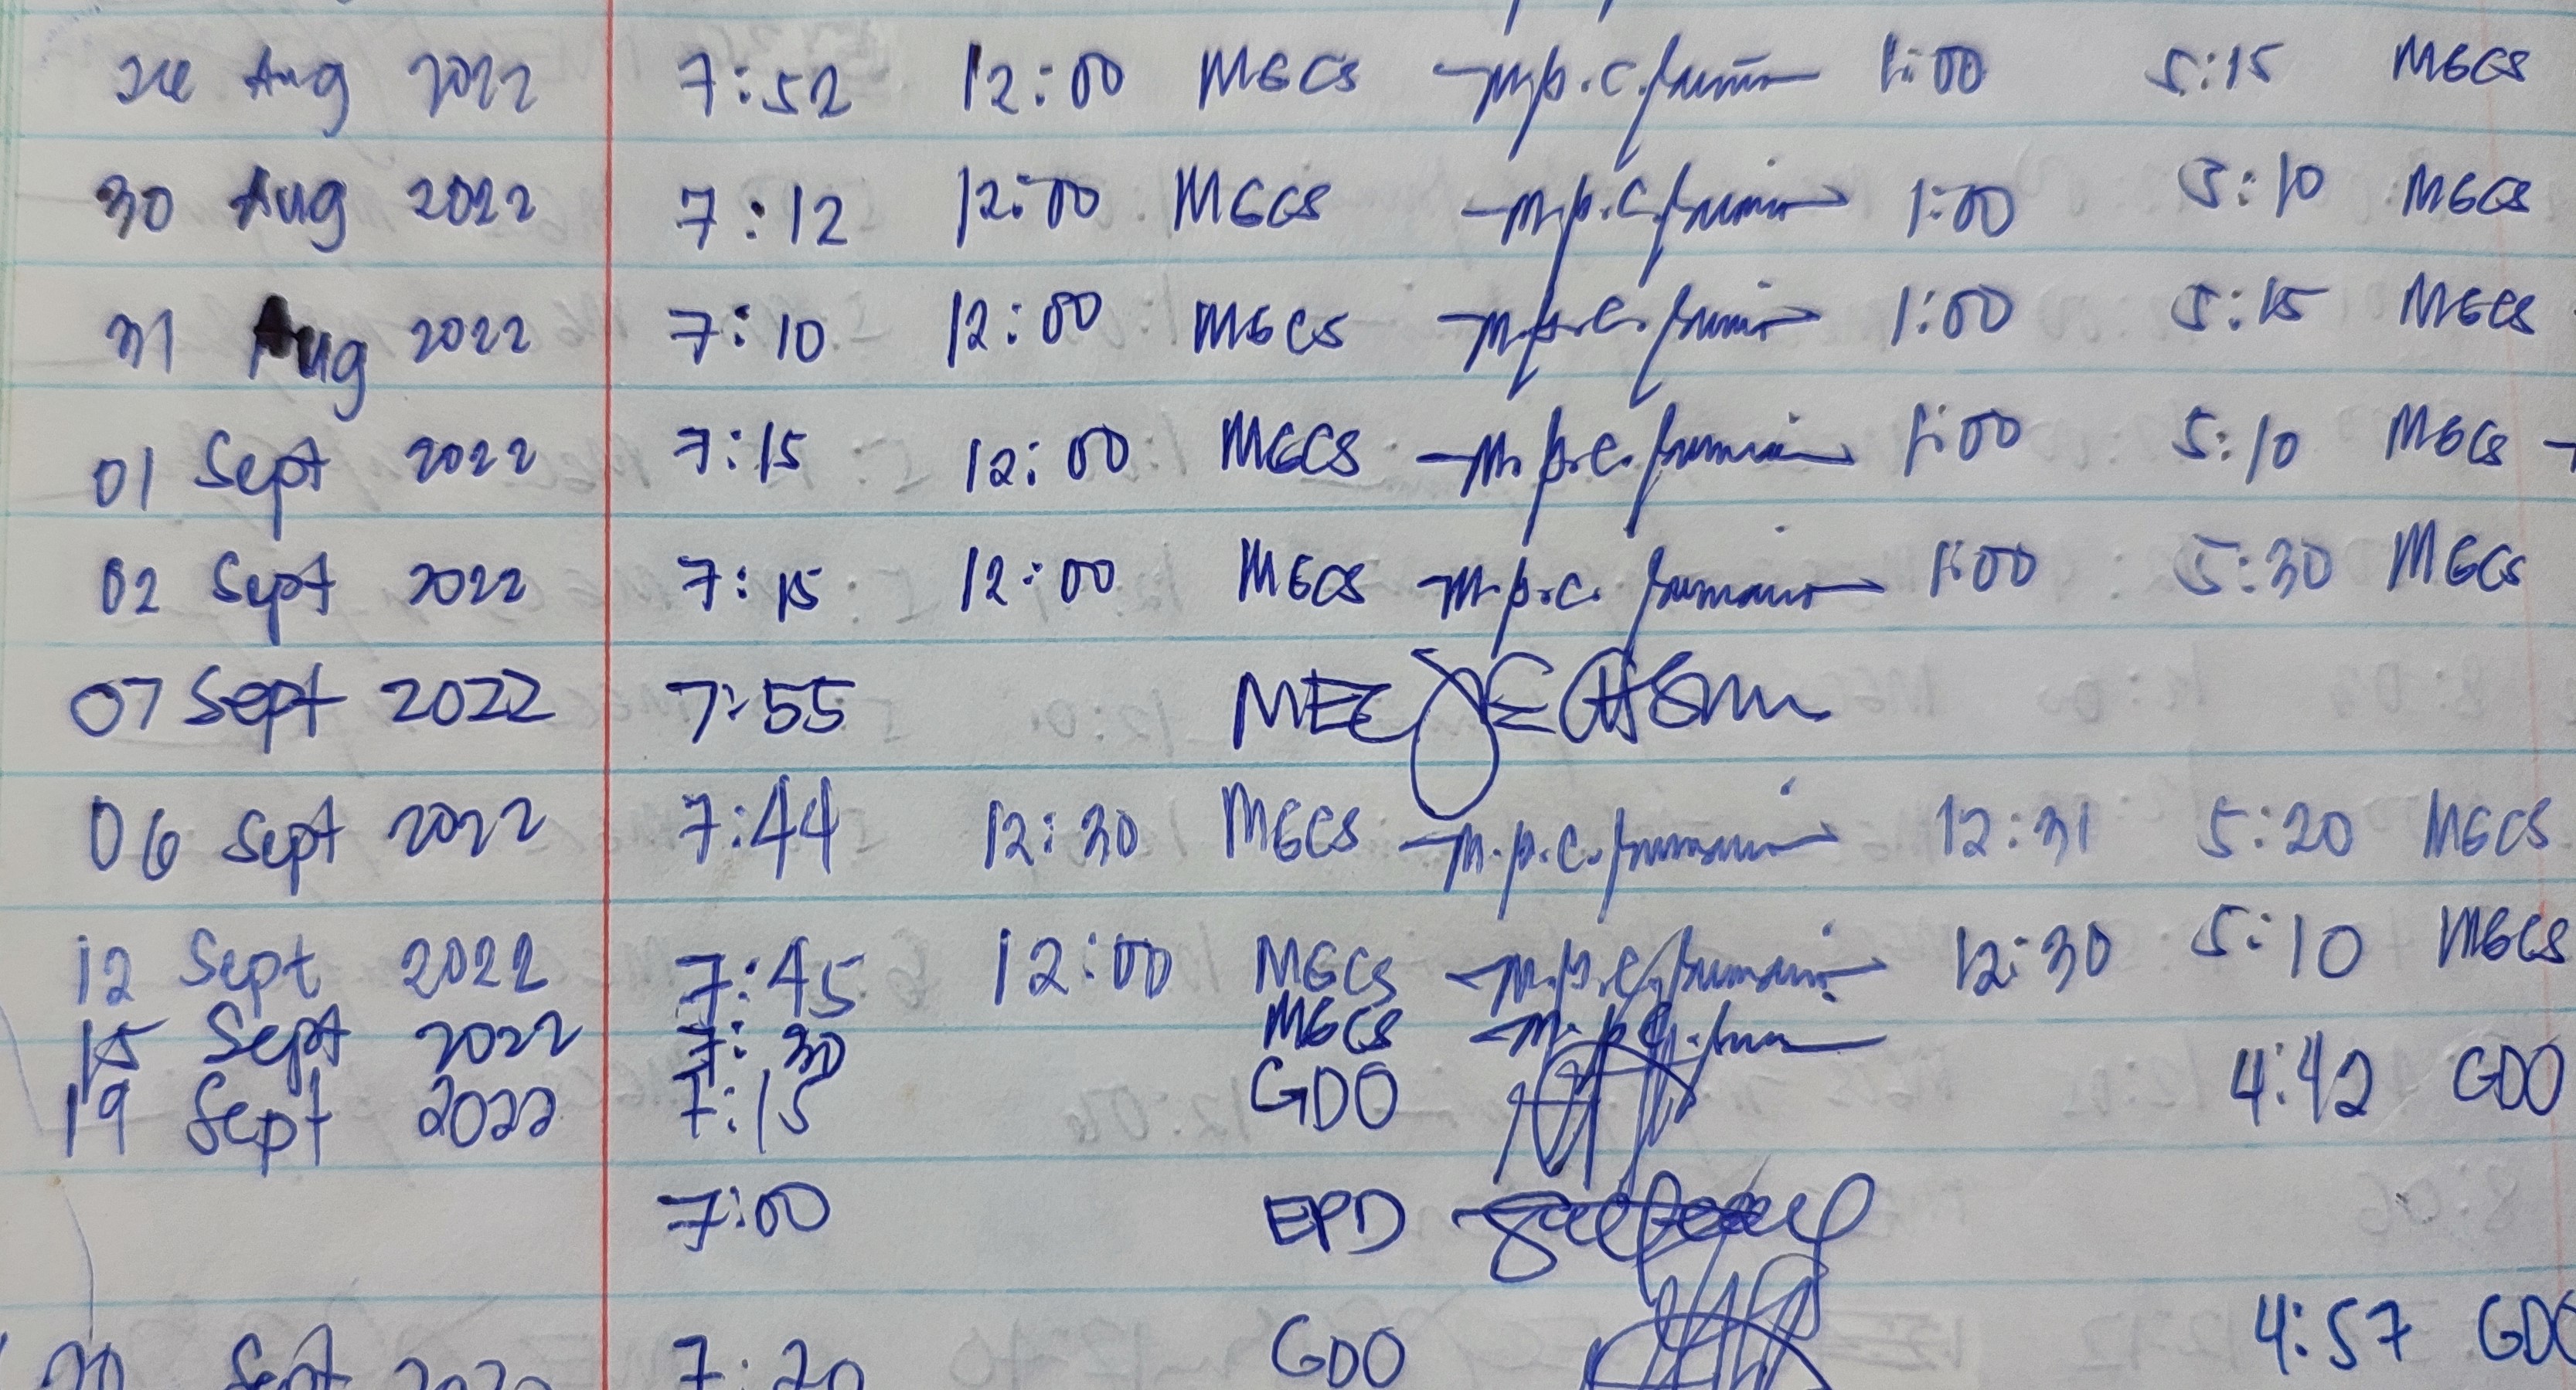 Aug 2022 7:52 12:00 MGCS 1:00 5:15 MGCS
30 Aug 2022 7:12 12:00 MGCS 1:00 5:10 MGCS
31 Aug 2022 7:10 12:00 MGCS 1:00 5:15 MGCS
01 Sept 2022 7:15 12:00 MGCS 1:00 5:10 MGCS
02 Sept 2022 7:15 12:00 MGCS 1:00 5:30 MGCS
07 Sept 2022 7:55
06 Sept 2022 7:44 12:30 MGCS 12:31 5:20 MGCS
12 Sept 2022 7:45 12:00 MGCS 12:30 5:10 MGCS
15 Sept 2022 7:30 MGCS
19 Sept 2022 7:15 GDO 4:42 GDO
7:00 EPD
20 Sept 2022 7:20 GDO 4:57 GDO